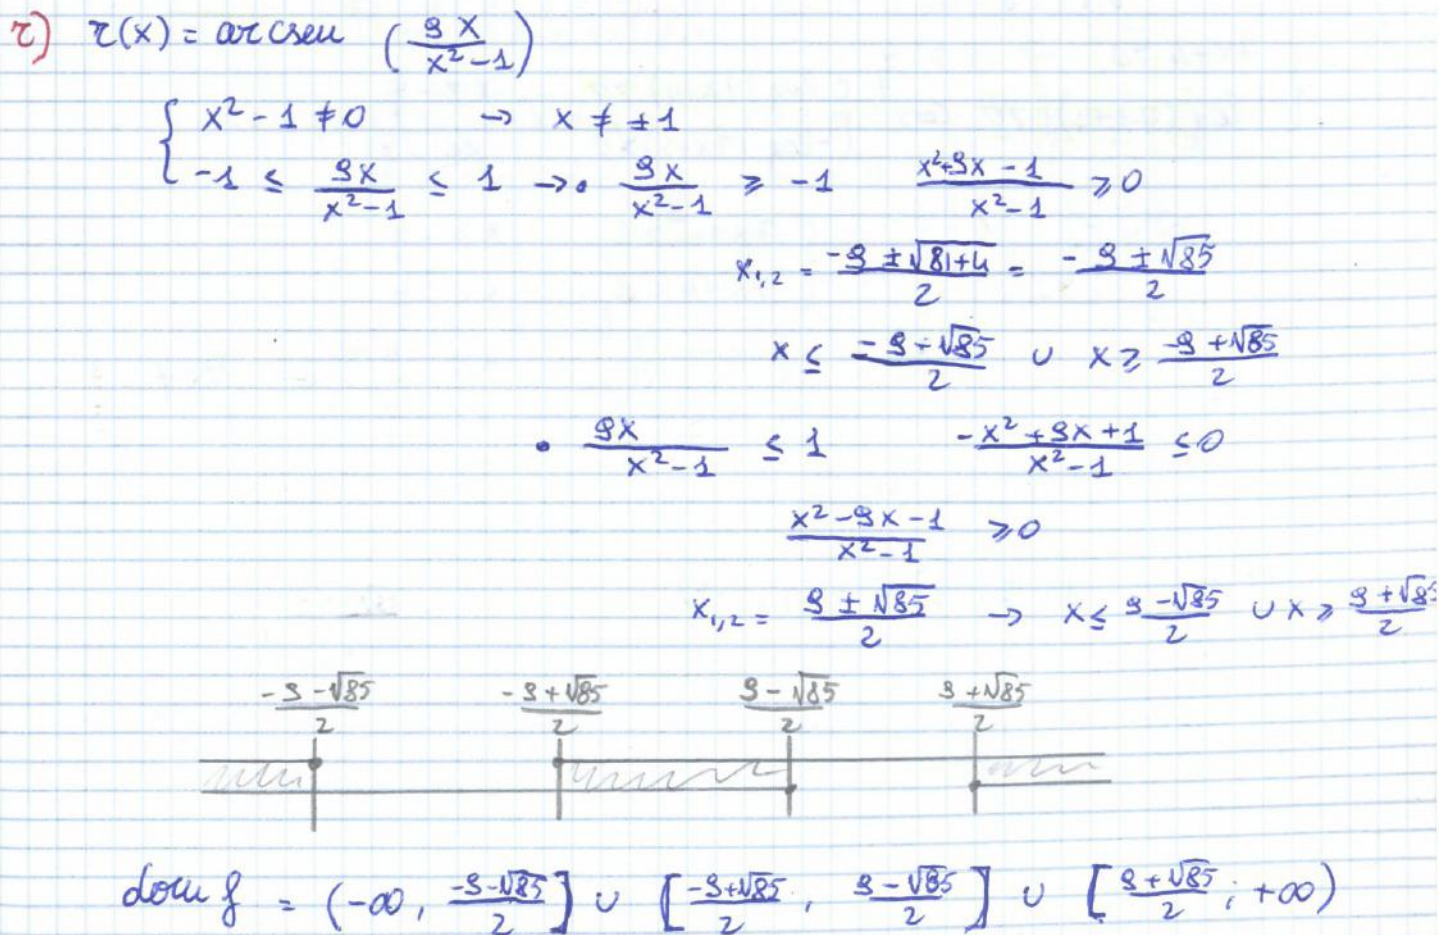 r) r(x) = arcsen (9x/(x²-1))
{ x² - 1 ≠ 0 → x ≠ ±1
-1 ≤ 9x/(x²-1) ≤ 1 → • 9x/(x²-1) ≥ -1 (x²+9x-1)/(x²-1) ≥ 0
x₁,₂ = (-9 ± √(81+4))/2 = (-9 ± √85)/2
x ≤ (-9-√85)/2 ∪ x ≥ (-9+√85)/2
• 9x/(x²-1) ≤ 1 (-x²+9x+1)/(x²-1) ≤ 0
(x²-9x-1)/(x²-1) ≥ 0
x₁,₂ = (9 ± √85)/2 → x ≤ (9-√85)/2 ∪ x ≥ (9+√85)/2
(-9-√85)/2 (-9+√85)/2 (9-√85)/2 (9+√85)/2
dom f = (-∞, (-9-√85)/2] ∪ [(-9+√85)/2, (9-√85)/2] ∪ [(9+√85)/2; +∞)